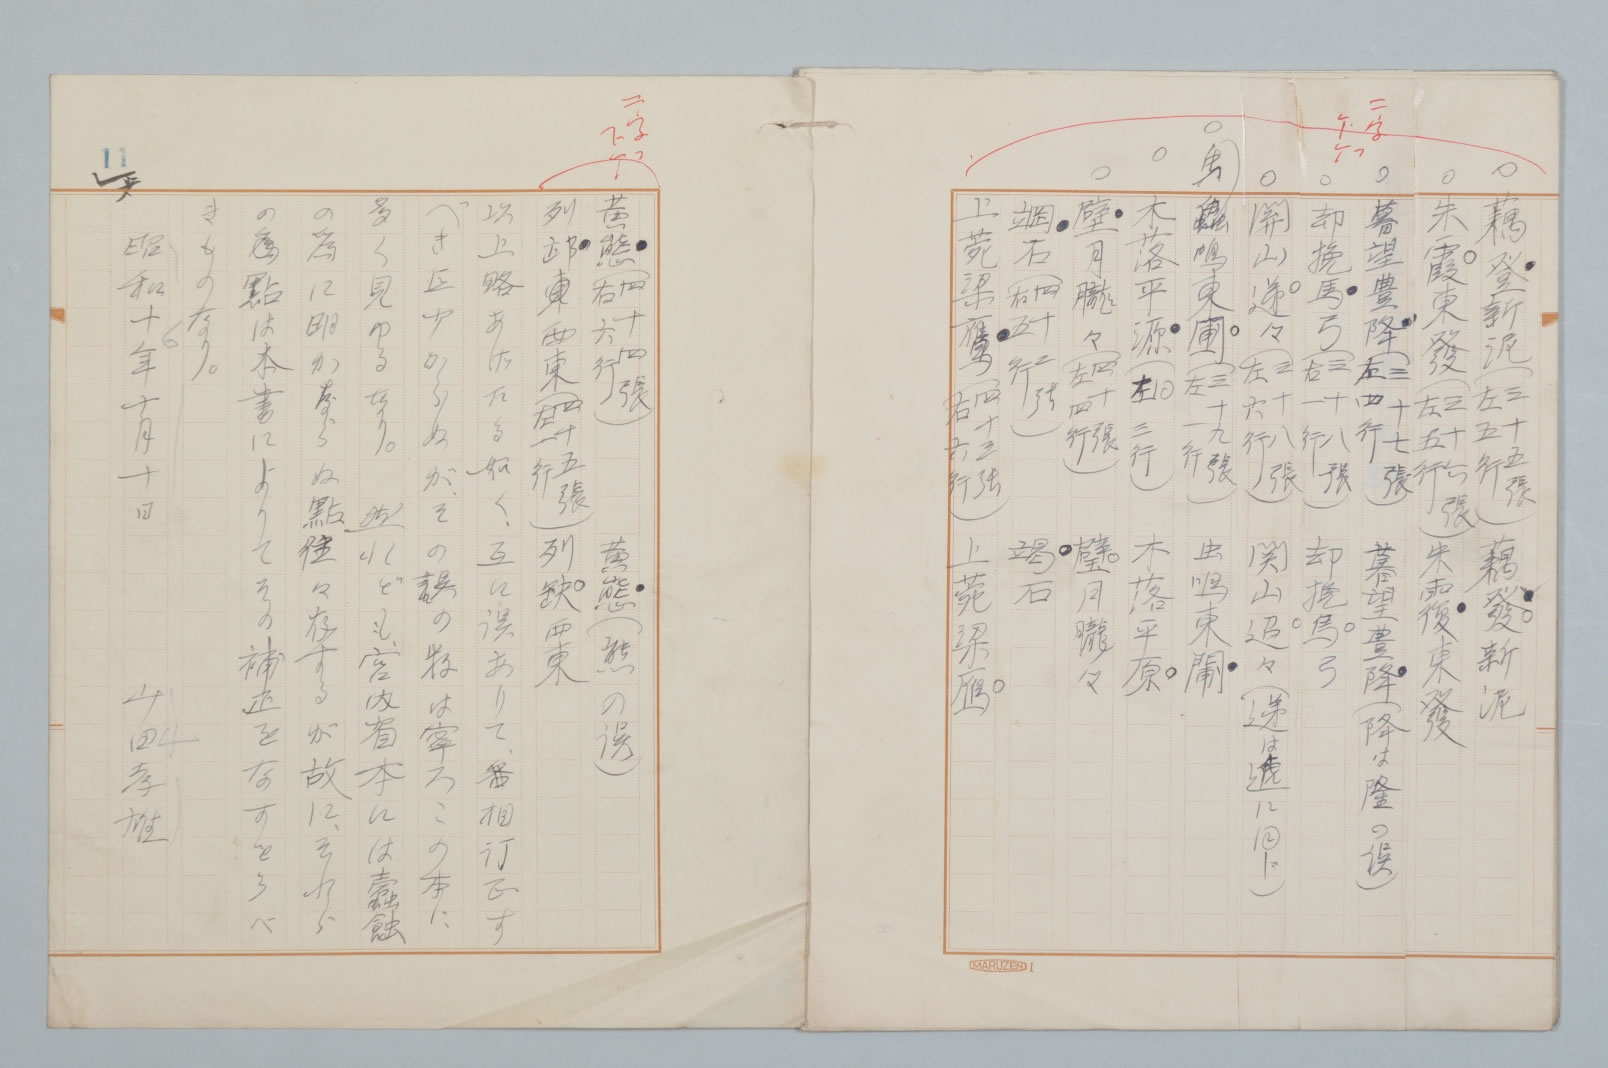 二字下ケ
藕登新泥(三十五張左五行) 藕發新泥
朱霞東發(三十六張左五行) 朱霞東發
暮望豊降(三十七張左四行) 暮望豊降(降は隆の誤)
却挽馬弓(三十八張右一行) 却挽馬弓
関山逓々(三十八張左六行) 関山迢々(逓は遞に同じ)
鳴東圃(三十九張左一行) 虫鳴東閘
木落平源(同左三行) 木落平原
壁月朧々(四十張左四行) 璧月朧々
碣石(四十二張右五行) 碣石
上菀梁鴈(四十三張右六行) 上菀梁鴈
MARUZEN 1
二字下ケ
黄態(四十四張右六行) 黄態(熊の誤)
列邶東西東(四十五張右一行) 列缺西東
以上略あげたる如く、互に誤ありて、番相訂正す
べき点少からぬが、その誤の数は寧ろこの本に
多く見ゆるなり。然れども、宮内省本には蠹蝕
の為に明かならぬ點往々存するが故に、それら
の為點は本書によりてその補追をなすをうべ
きものなり。
昭和十年十月十日
6
山田孝雄
11